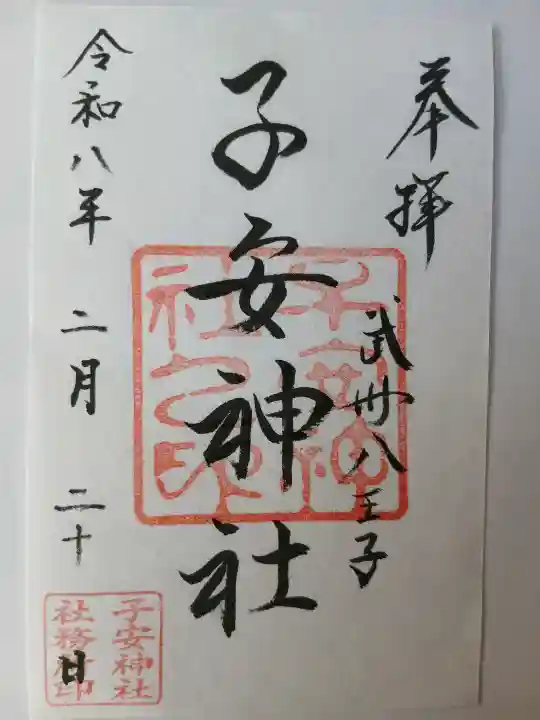 奉拝
武州八王子
子安神社
令和八年 二月 二十日
子安神社之印
子安神社
社務所印